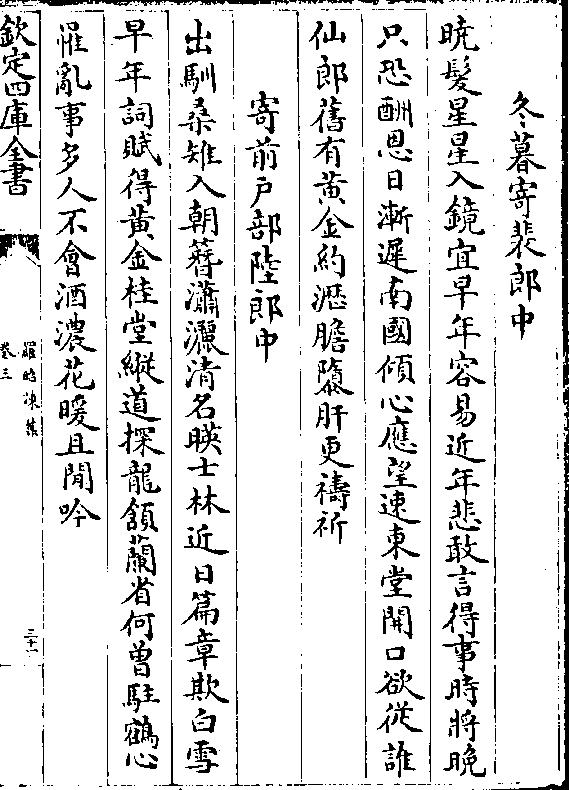 冬暮寄裴郎中
曉髮星星入鏡宜早年容易近年悲敢言得事時將晚
只恐酬恩日漸遲南國傾心應望速東堂開口欲從誰
仙郎舊有黄金約瀝膽隳肝更禱祈
寄前戸部陸郎中
出馴桑雉入朝簪瀟灑清名暎士林近日篇章欺白雪
早年詞賦得黄金桂堂縱道探龍頷蘭省何曾駐鶴心
罹亂事多人不會酒濃花暖且閒吟
欽定四庫全書
羅昭諫集
卷三
三十一